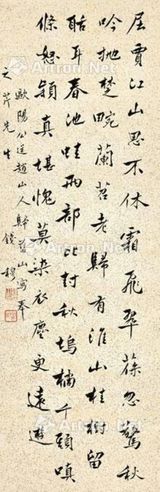 屈賈江山思不休霜飛翠葆忽驚秋
吟拋楚畹蘭苕老歸有淮山桂樹留
聒耳春池蛙兩部比封秋塢橘千頭嗔
條怒穎真堪愧莫染衣塵更遠遊
歐陽公送趙山人歸舊山寫奉
云芹先生 錢穆